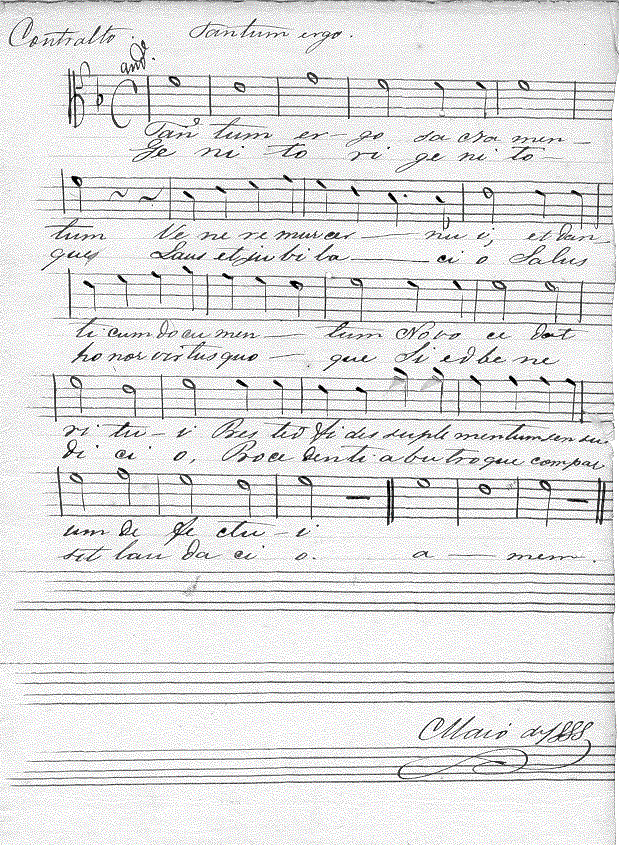 Contralto. Tantum ergo.
ande.
Tan tum er-go sa cra men-
Ge ni to ri ge ni to-
tum Ve ne re mur cer — nu i, et dan
que Laus et ju bi la — ci o Salus
ti cum do cu men — tum Novo ce dat
ho nor virtus quo — que Si ed be ne
ri tu-i Pres ted fi des suple mentum sen su
di ci o, Proce denti a bu troque compar
um de fe ctu-i
sit lau da ci o. a — mem.
Maio de 1888